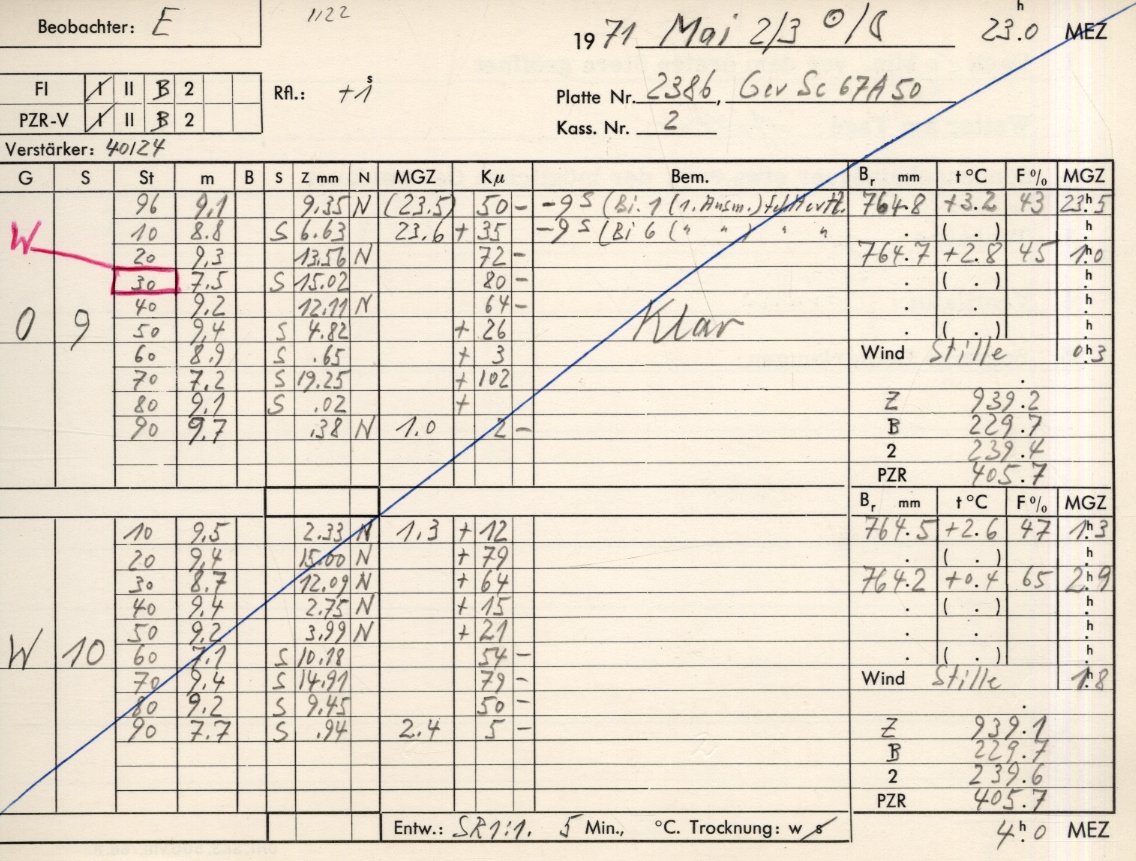 Beobachter: E 1122 19 71 Mai 2/3 23.0 h MEZ
FI I II B 2 Rfl.: +1 s Platte Nr. 2386, Gev Sc 67A50
PZR-V I II B 2 Kass. Nr. 2
Verstärker: 40/24
G S St m B S Z mm N MGZ Kµ Bem. Br mm t °C F % MGZ
96 9.1 9.35 N (23.5) 50 - -9 s (Bi. 1 (1. Ausm.) 764.8 +3.2 43 23h5
W 10 8.8 S 6.63 23.6 + 35 -9 s (Bi 6 (" ") " " . ( . ) h
20 9.3 13.56 N 72 - 764.7 +2.8 45 1h0
30 7.5 S 15.02 80 - . ( . ) h
0 9 40 9.2 12.11 N 64 - Klar . . h
50 9.4 S 4.82 + 26 . ( . ) h
60 8.9 S .65 + 3 Wind Stille 0h3
70 7.2 S 19.25 + 102 .
80 9.1 S .02 + Z 939.2
90 9.7 .38 N 1.0 2 - B 229.7
2 239.4
PZR 405.7
Br mm t °C F % MGZ
10 9.5 2.33 N 1.3 + 12 764.5 +2.6 47 1h3
20 9.4 15.00 N + 79 . ( . ) h
30 8.7 12.09 N + 64 764.2 +0.4 65 2h9
40 9.4 2.75 N + 15 . ( . ) h
50 9.2 3.99 N + 21 . . h
W 10 60 7.1 S 10.18 54 - . ( . ) h
70 9.4 S 14.91 79 - Wind Stille 1h8
80 9.2 S 9.45 50 - .
90 7.7 S .94 2.4 5 - Z 939.1
B 229.7
2 239.6
PZR 405.7
Entw.: SR 1:1. 5 Min., °C. Trocknung: w s 4h0 MEZ